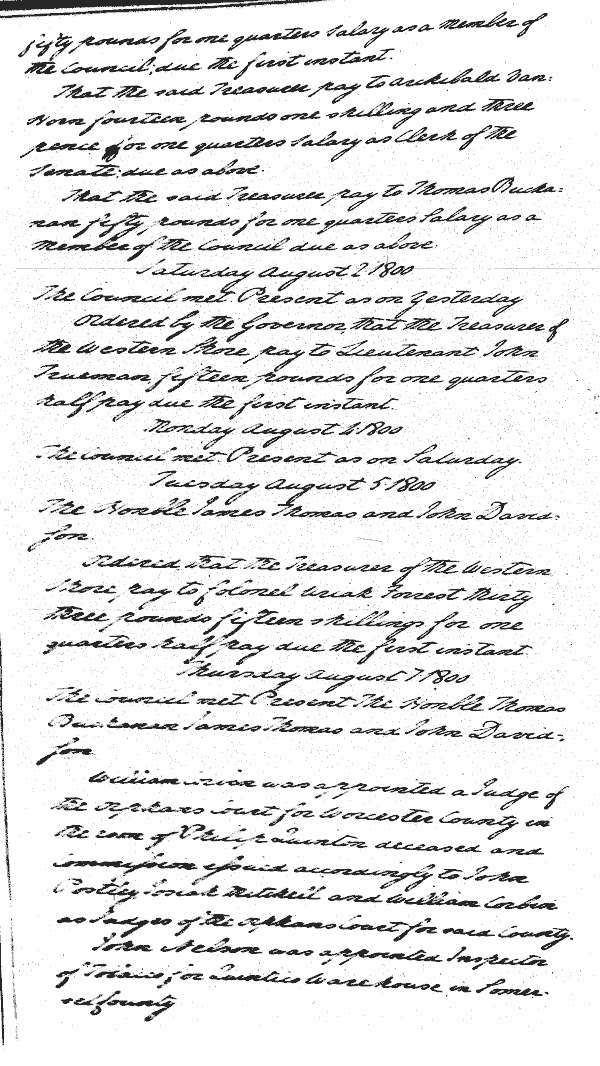 fifty pounds for one quarters Salary as a member of
the Council; due the first instant.
That the said Treasurer pay to Archibald Van-
Horn fourteen pounds one shilling and three
pence for one quarters Salary as Clerk of the
Senate; due as above.
That the said Treasurer pay to Thomas Bucha-
nan fifty pounds for one quarters Salary as a
member of the Council due as above
Saturday August 2 1800
The Council met. Present as on Yesterday
Ordered by the Governor, that the Treasurer of
the Western Shore pay to Lieutenant John
Trueman fifteen pounds for one quarters
half pay due the first instant.
Monday August 4 1800
The Council met. Present as on Saturday.
Tuesday August 5 1800
The Honble James Thomas and John David-
son.
Ordered that the Treasurer of the Western
Shore, pay to Colonel Uriah Forrest thirty
three pounds fifteen shillings for one
quarters half pay due the first instant
Thursday August 7 1800
The Council met Present The Honble Thomas
Buchanan James Thomas and John David-
son
William was appointed a Judge of
the orphans Court for Worcester County in
the room of Philip Quinton deceased and
Commission issued accordingly to John
Postley Josiah Mitchell and William Corbin
as Judges of the orphans Court for said County.
John Nelson was appointed Inspector
of Tobacco for Quantico Warehouse in Somer-
set County